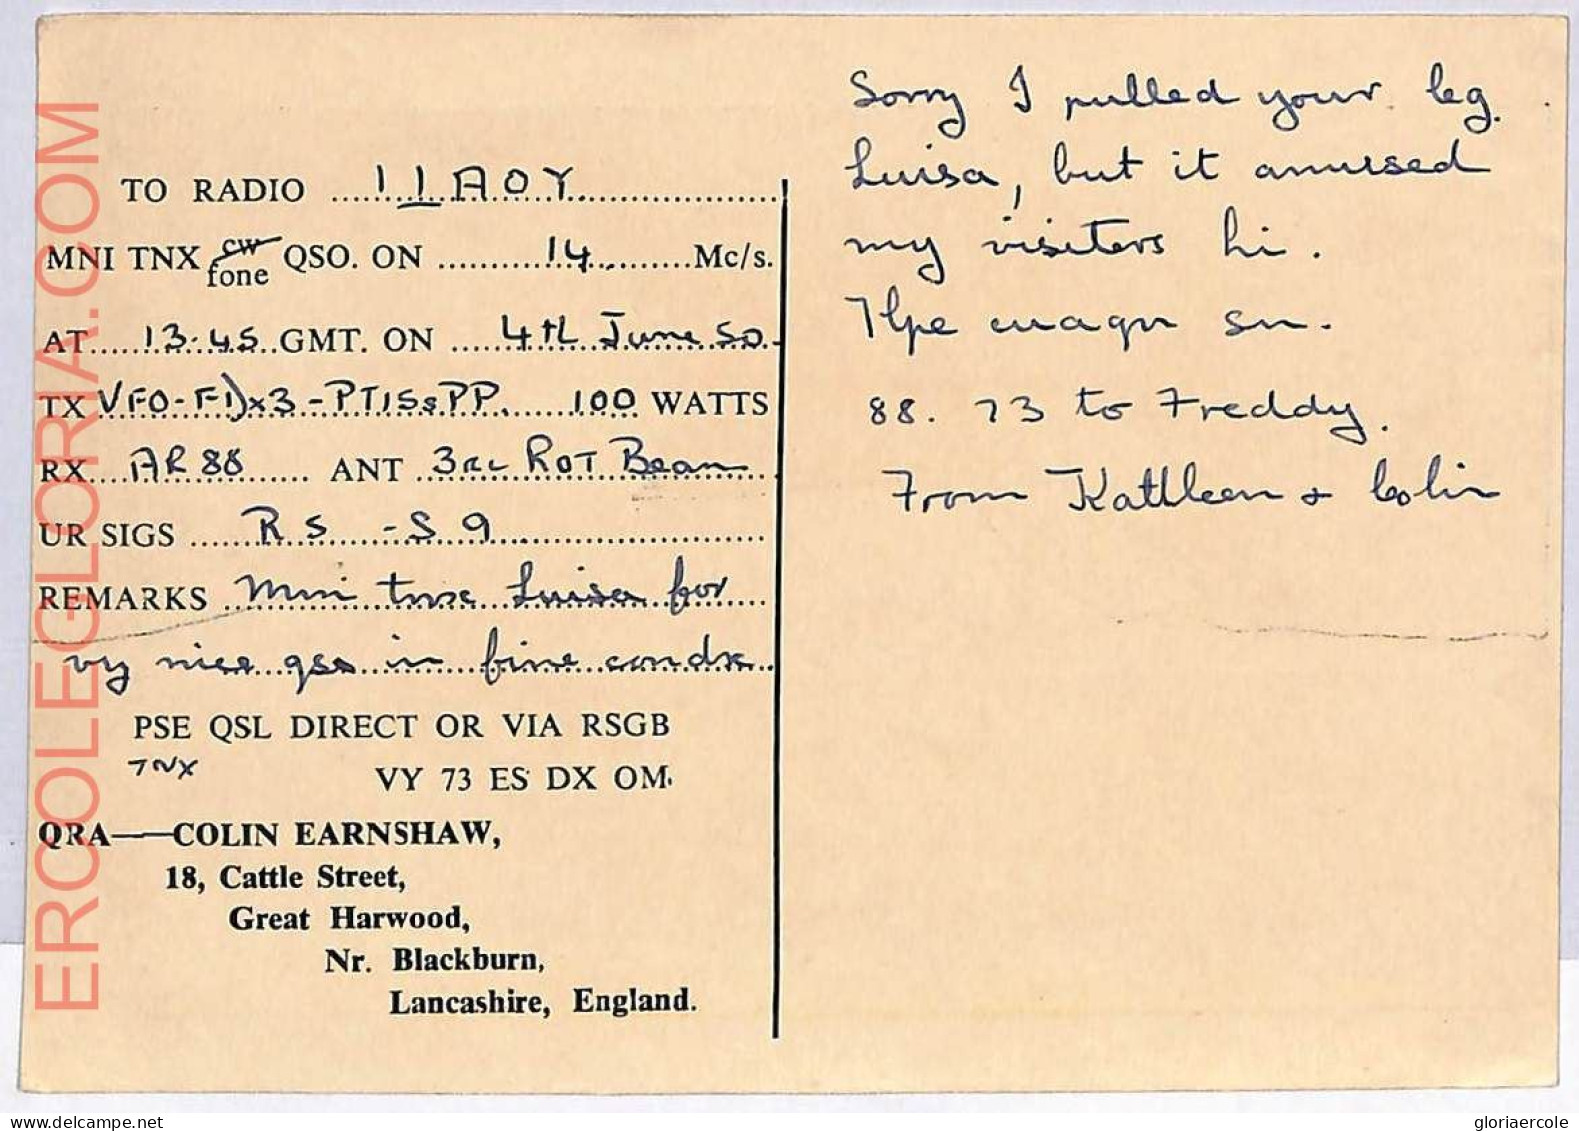 TO RADIO ....I1AOY....
MNI TNX cw fone QSO. ON ....14....Mc/s.
AT....13.45..GMT. ON ....4th June 50
TX VFO-FD x3-PT15s PP. ....100 WATTS
RX...AR88...... ANT .3 el Rot Beam
UR SIGS ....R 5 - S 9....
REMARKS Mni tnx Luisa for
vy nice qso in fine condx.
PSE QSL DIRECT OR VIA RSGB
TNX
VY 73 ES DX OM.
QRA—COLIN EARNSHAW,
18, Cattle Street,
Great Harwood,
Nr. Blackburn,
Lancashire, England.
Sorry I pulled your leg
Luisa, but it amused
my visitors hi.
Hpe cuagn sn.
88. 73 to Freddy.
From Kathleen & Colin
ERCOLEGLORIA.COM
gloriaercole